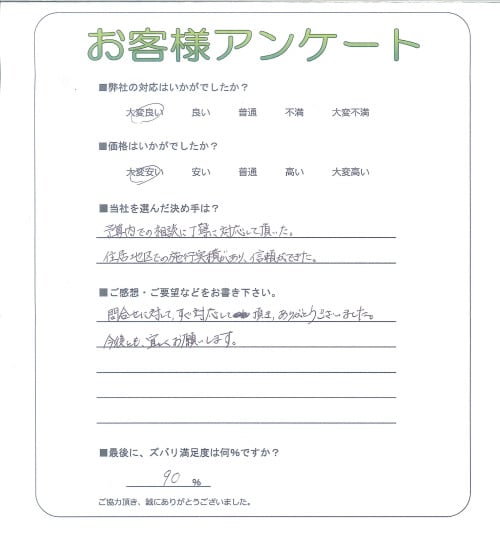 お客様アンケート
■弊社の対応はいかがでしたか？
大変良い 良い 普通 不満 大変不満
■価格はいかがでしたか？
大変安い 安い 普通 高い 大変高い
■当社を選んだ決め手は？
予算内での相談に丁寧に対応して頂いた。
住居地区での施行実績があり、信頼ができた。
■ご感想・ご要望などをお書き下さい。
問合せに対して、すぐ対応して頂き、ありがとうございました。
今後とも、宜しくお願いします。
■最後に、ズバリ満足度は何％ですか？
90 ％
ご協力頂き、誠にありがとうございました。